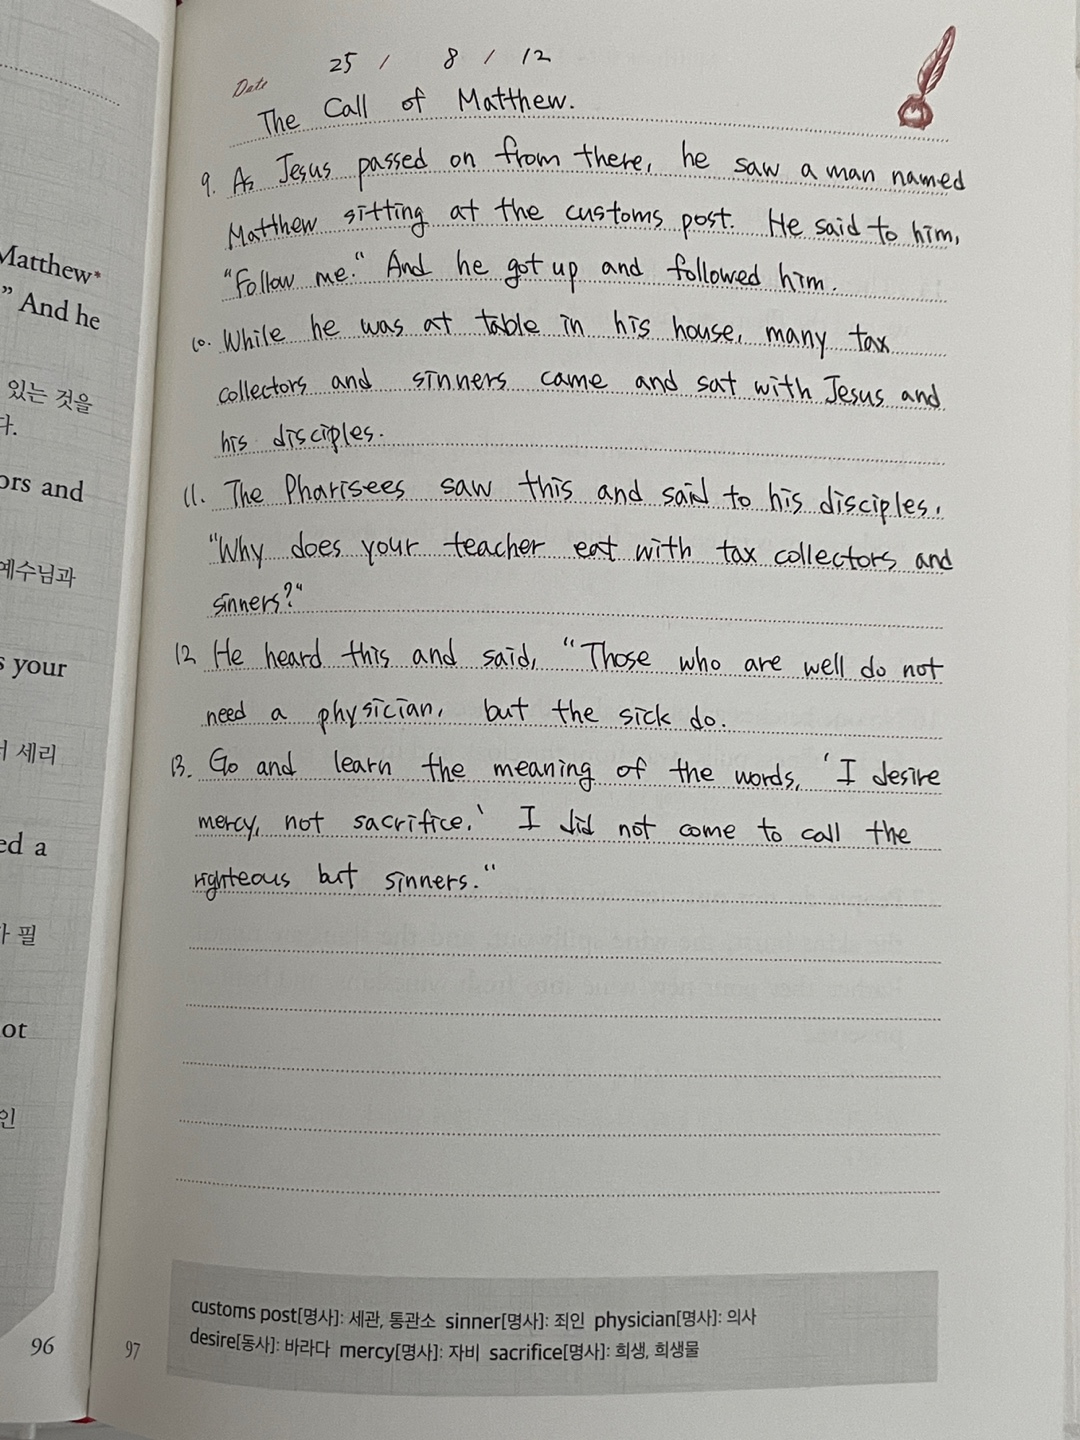 Matthew*
” And he
있는 것을
다.
ors and
예수님과
s your
서 세리
ed a
가 필
ot
인
96
Date 25 / 8 / 12
The Call of Matthew.
9. As Jesus passed on from there, he saw a man named
Matthew sitting at the customs post. He said to him,
"Follow me." And he got up and followed him.
10. While he was at table in his house, many tax
collectors and sinners came and sat with Jesus and
his disciples.
11. The Pharisees saw this and said to his disciples,
"Why does your teacher eat with tax collectors and
sinners?"
12 He heard this and said, "Those who are well do not
need a physician, but the sick do.
13. Go and learn the meaning of the words, 'I desire
mercy, not sacrifice.' I did not come to call the
righteous but sinners."
customs post[명사]: 세관, 통관소 sinner[명사]: 죄인 physician[명사]: 의사
desire[동사]: 바라다 mercy[명사]: 자비 sacrifice[명사]: 희생, 희생물
97